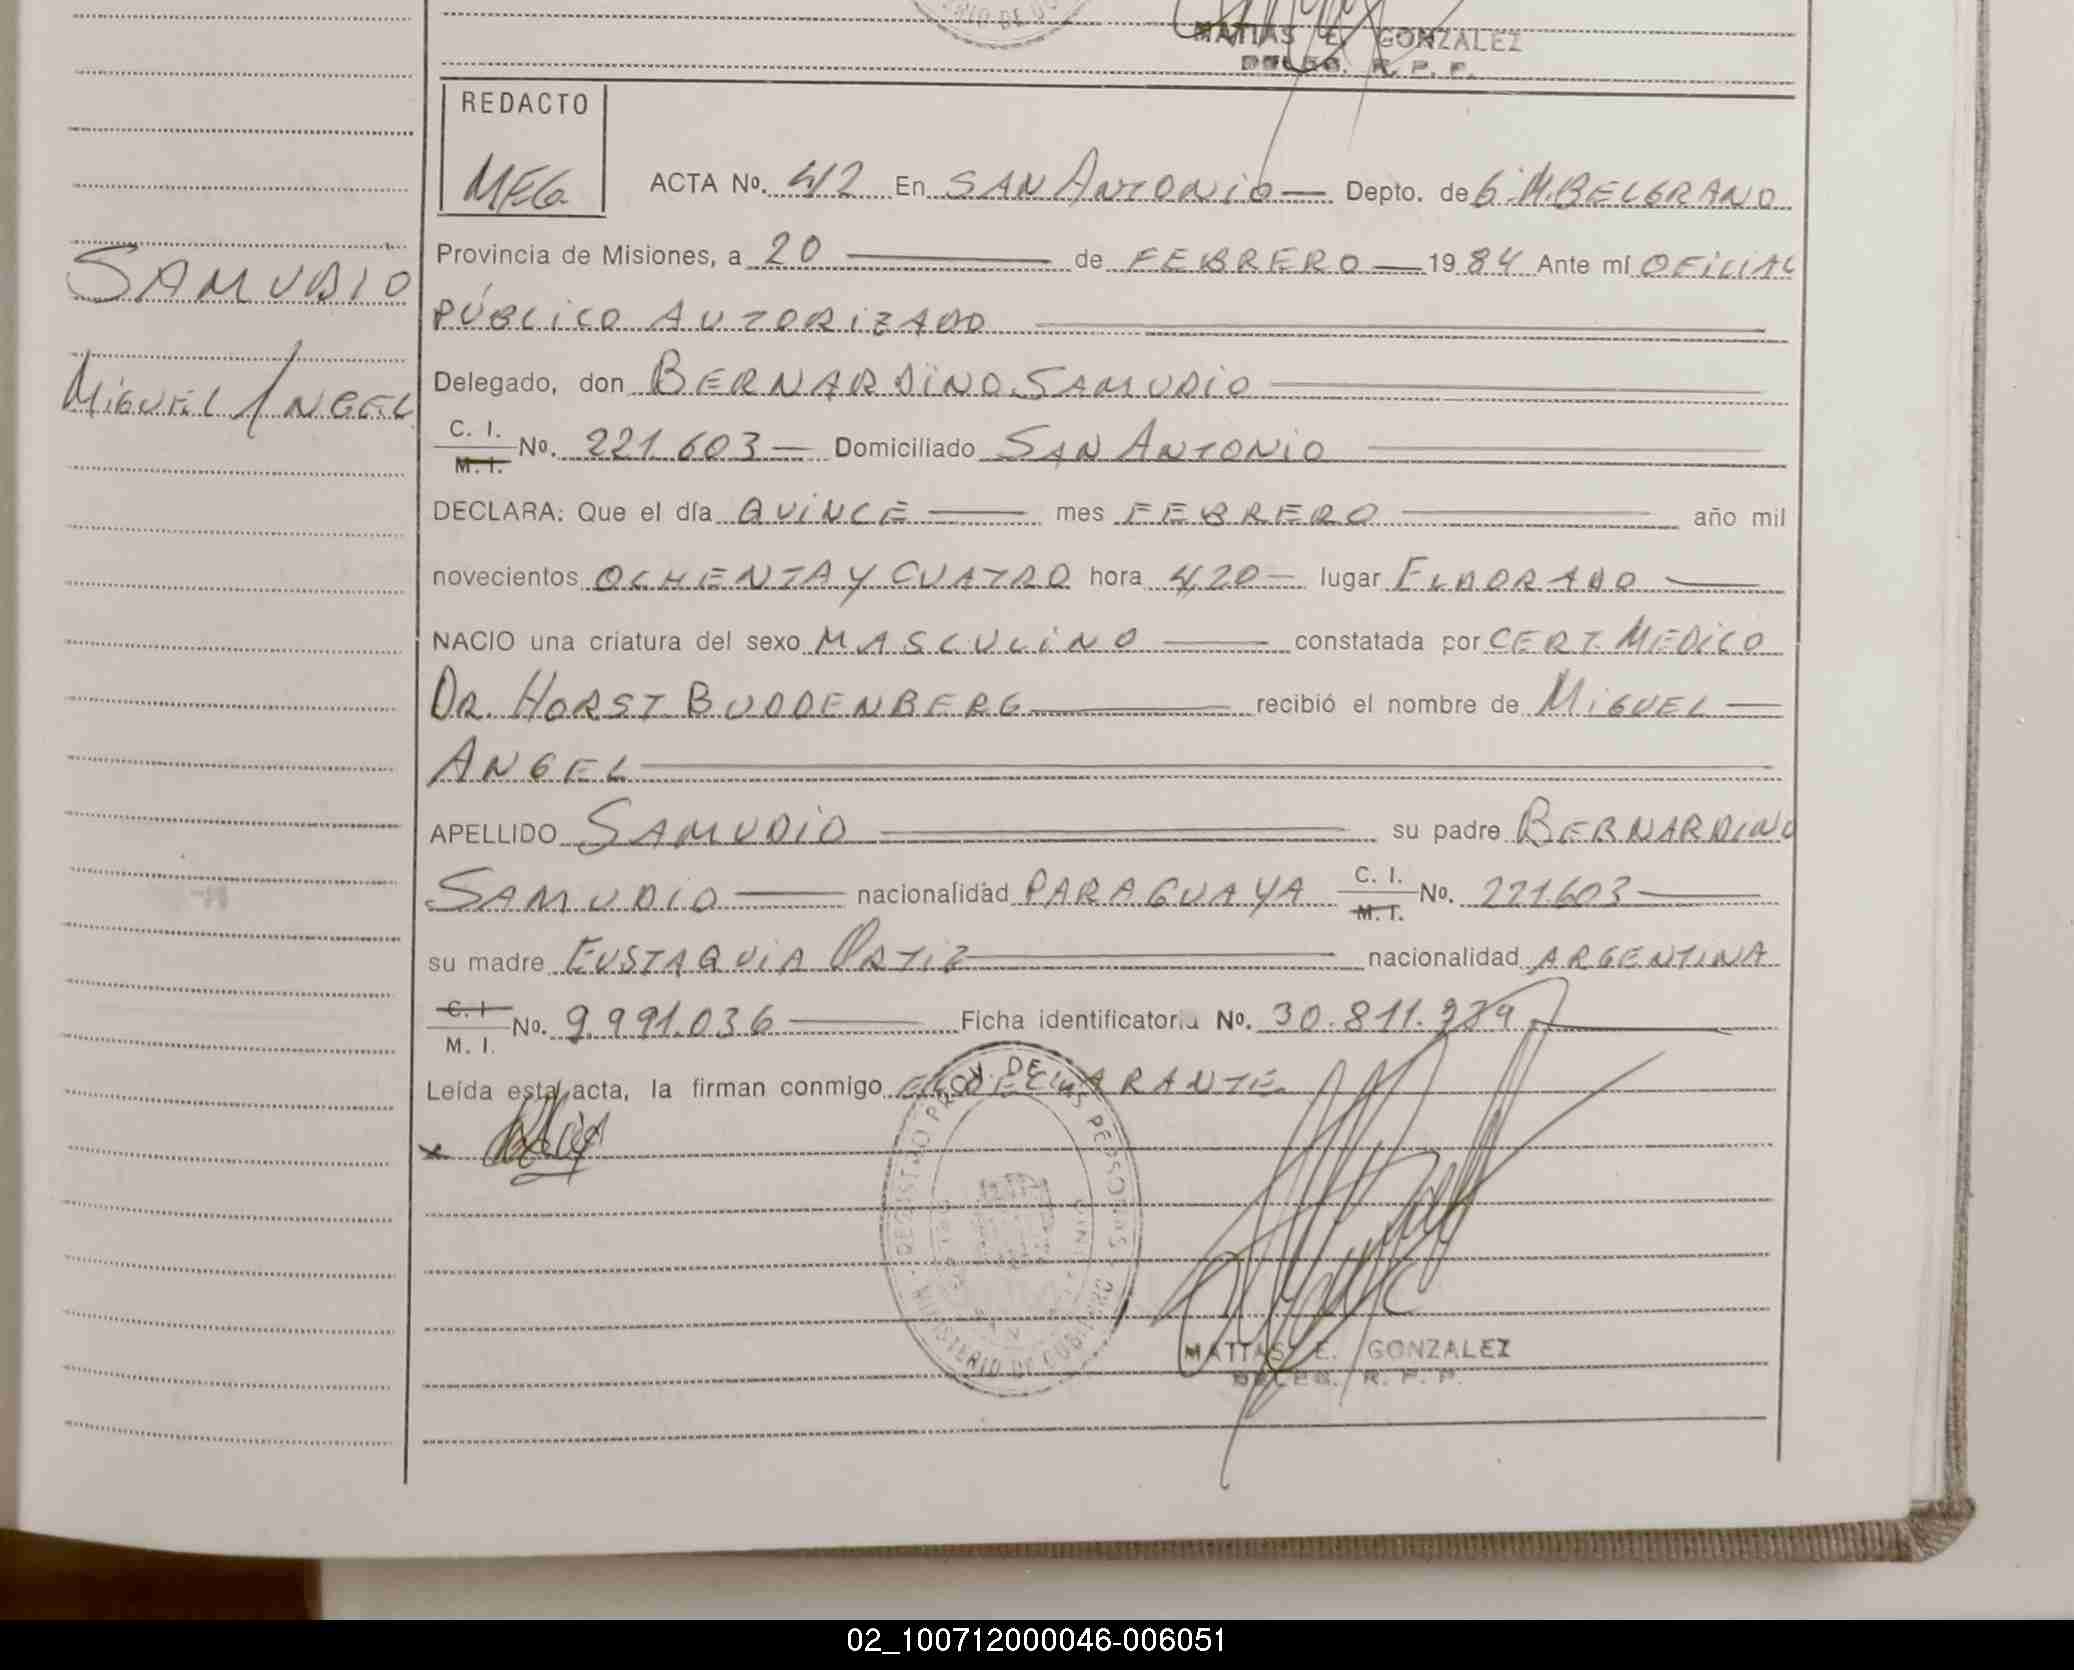 MATIAS E. GONZALEZ
DELEG. R. P. P.
REDACTO
MEG
ACTA No. 412 En SAN ANTONIO — Depto. de G. M. BELGRANO
Provincia de Misiones, a 20 — de FEBRERO — 1984 Ante mí OFICIAL
PÚBLICO AUTORIZADO
SAMUDIO
Delegado, don BERNARDINO SAMUDIO
MIGUEL ANGEL
C. I.
M. I. No. 221.603 — Domiciliado SAN ANTONIO
DECLARA: Que el día QUINCE — mes FEBRERO — año mil
novecientos OCHENTA Y CUATRO hora 4,20 — lugar ELDORADO —
NACIO una criatura del sexo MASCULINO — constatada por CERT. MEDICO
DR. HORST BUDDENBERG — recibió el nombre de MIGUEL —
ANGEL
APELLIDO SAMUDIO — su padre BERNARDINO
SAMUDIO — nacionalidad PARAGUAYA C. I. M. I. No. 221.603 —
su madre EUSTAQUIA ORTIZ — nacionalidad ARGENTINA
C. I.
M. I. No. 9.991.036 — Ficha identificatoria No. 30.811.989 —
Leída esta acta, la firman conmigo EL DECLARANTE
x
REGISTRO PROV. DE LAS PERSONAS
MINISTERIO DE GOBIERNO
MATIAS E. GONZALEZ
DELEG. R. P. P.
02_100712000046-006051